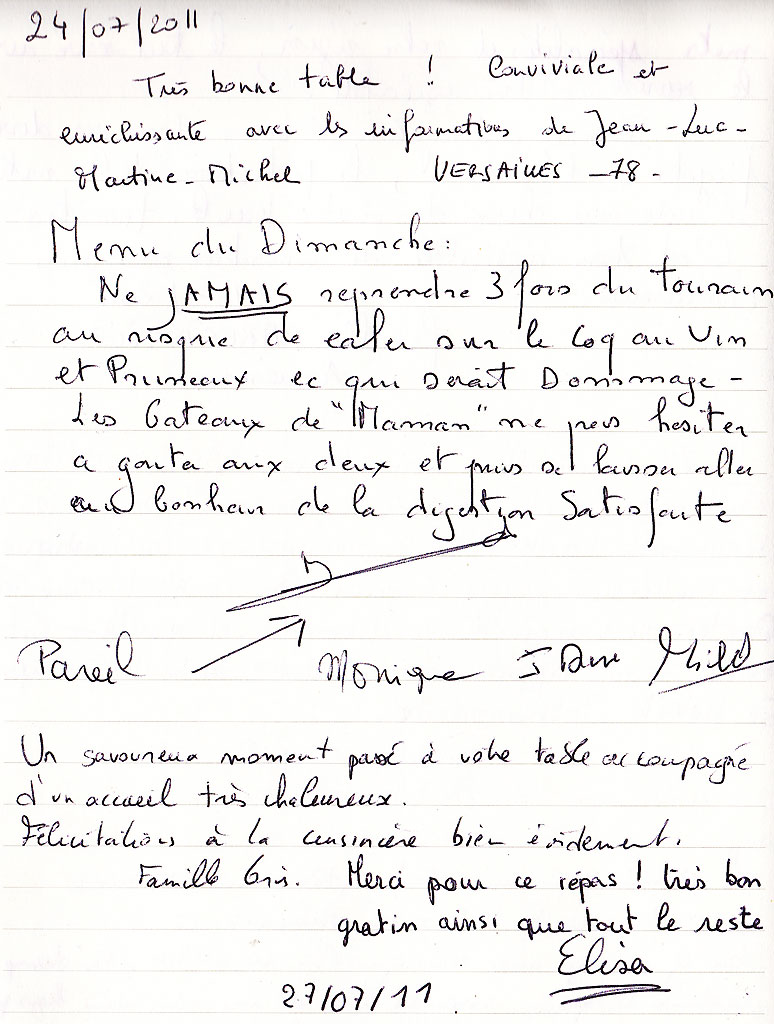 24/07/2011
Très bonne table ! Conviviale et
enrichissante avec les informations de Jean-Luc-
Martine-Michel VERSAILLES -78-
Menu du Dimanche:
Ne jAMAIS reprendre 3 fois du Tourain
au risque de caler sur le Coq au Vin
et Pruneaux ce qui serait Dommage-
Les Gateaux de "Maman" ne pas hesiter
a gouter aux deux et puis se laisser aller
au bonheur de la digestion Satisfaite
Pareil Monique
Un savoureux moment passé à votre table accompagné
d'un accueil très chaleureux.
Félicitations à la cuisinière bien évidement.
Famille Gris. Merci pour ce répas! très bon
gratin ainsi que tout le reste
Elisa
27/07/11.